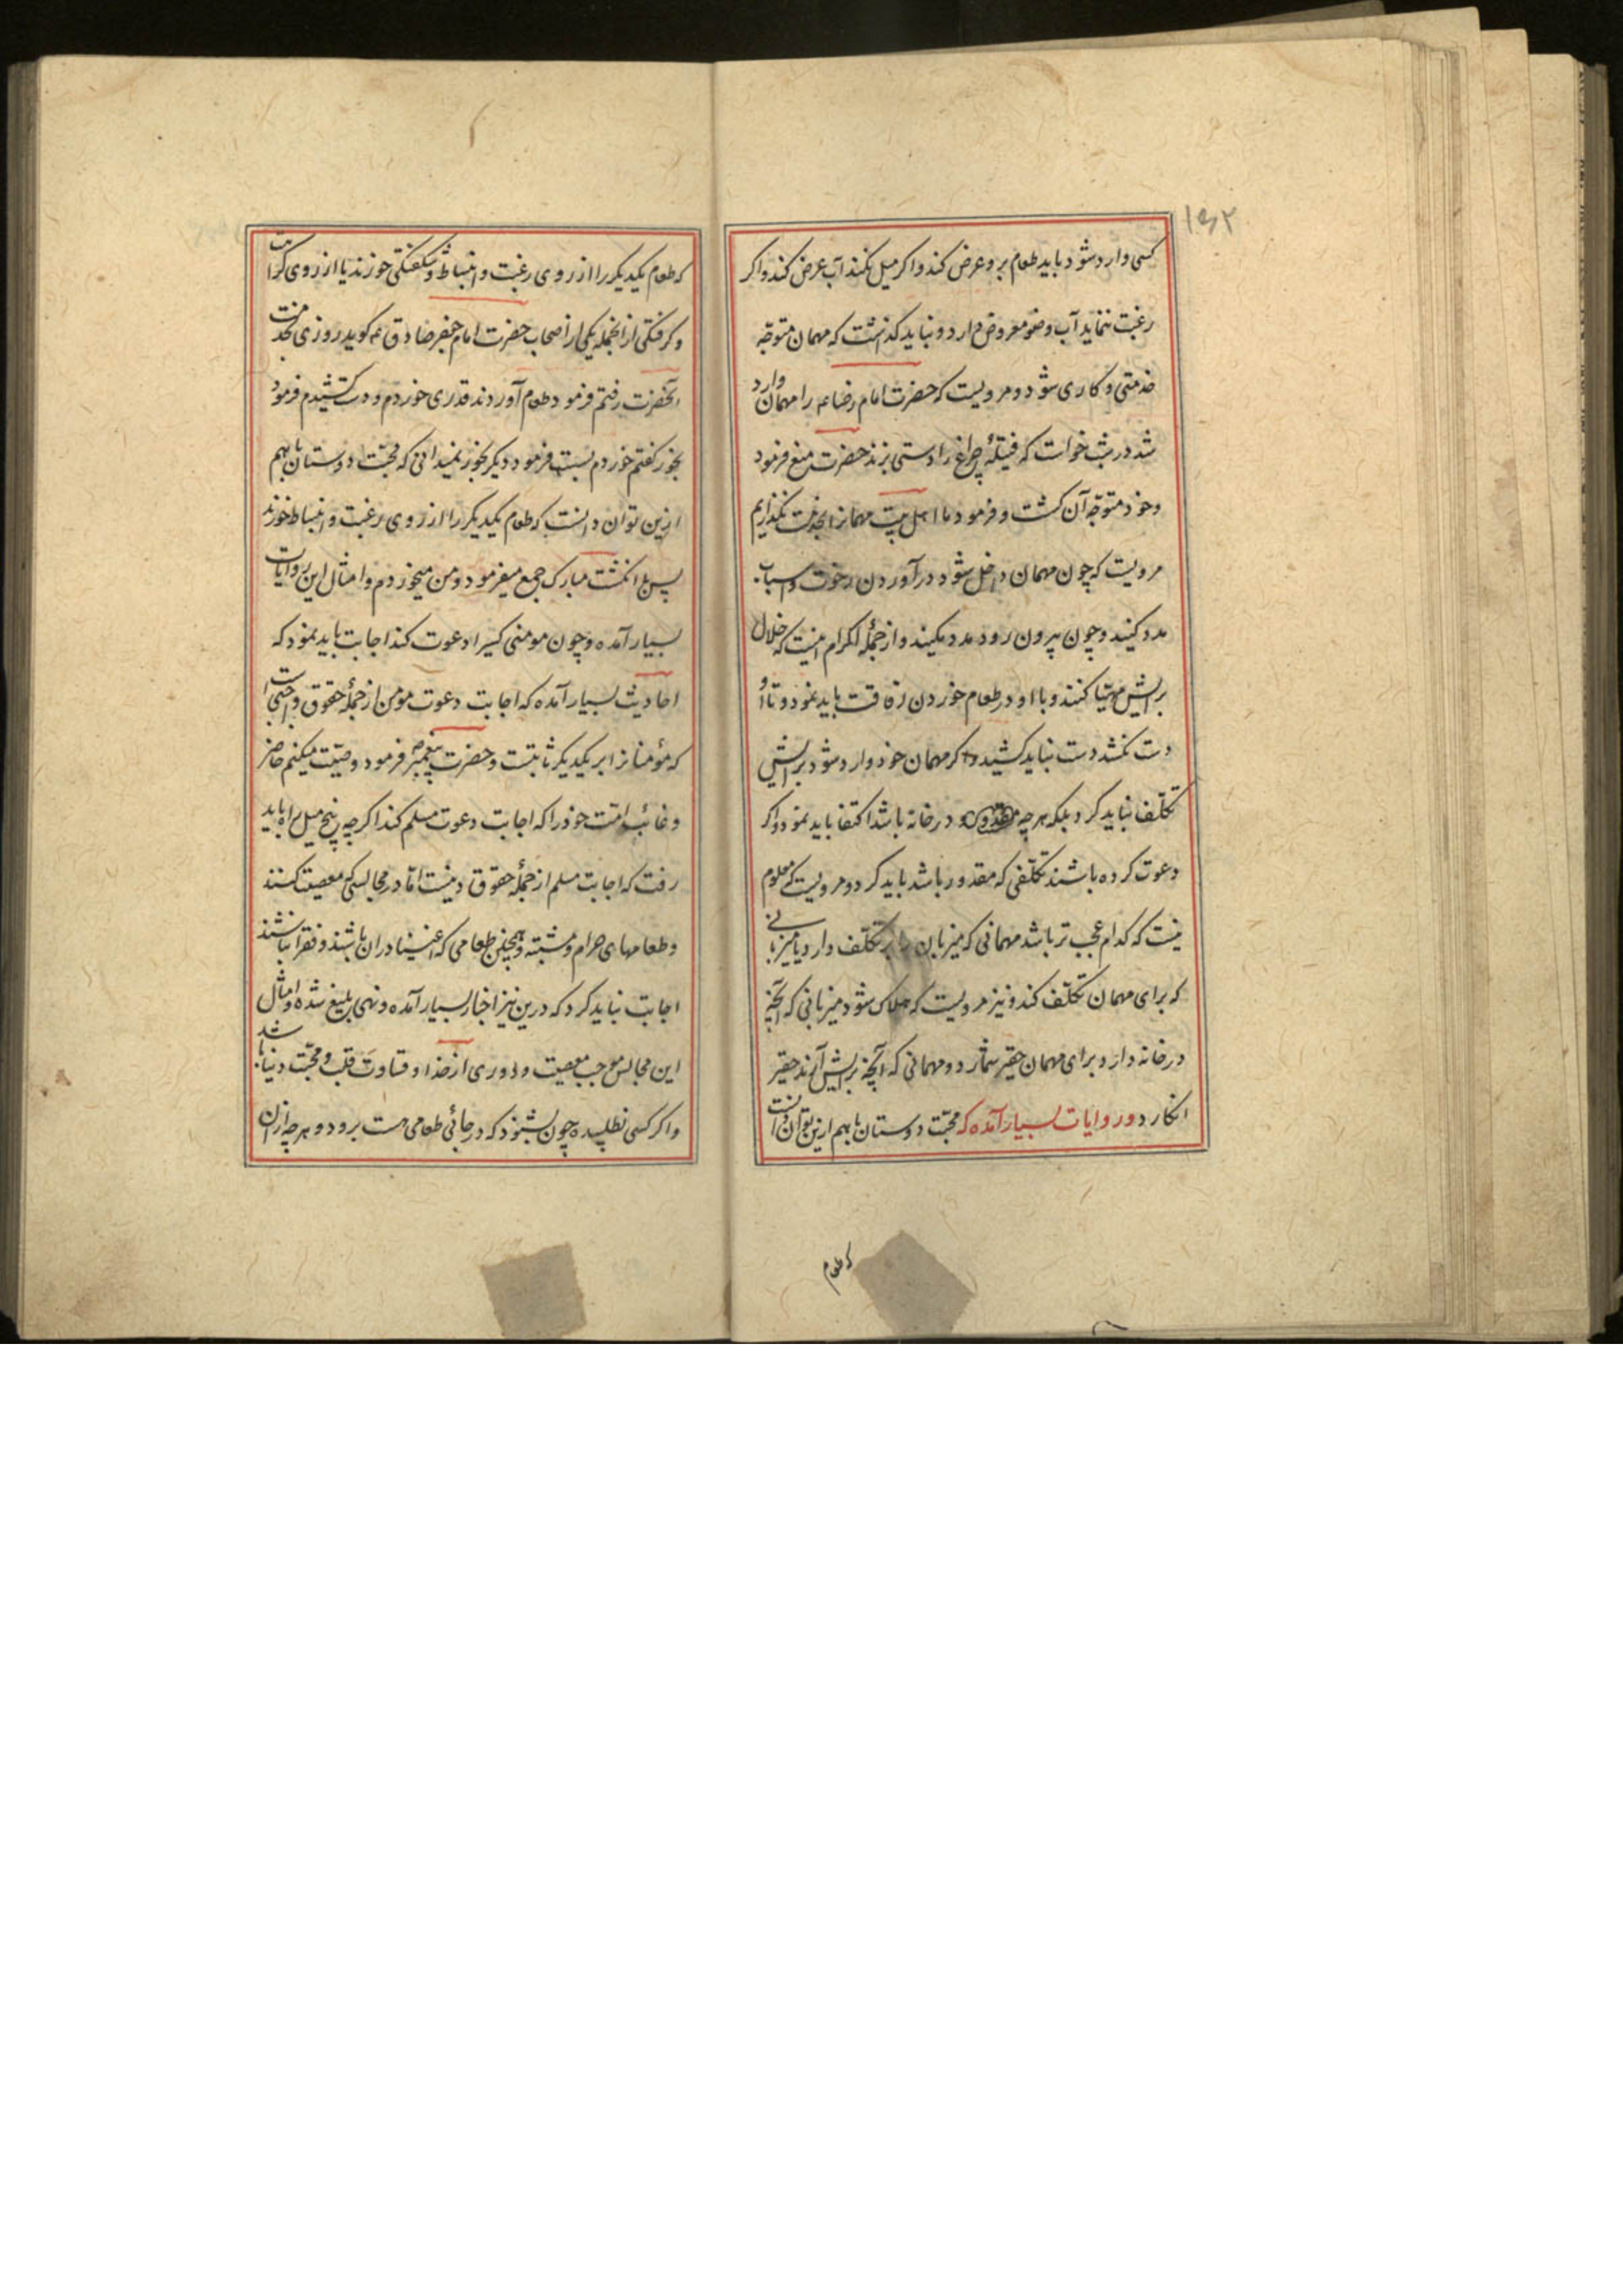 ۱۵۲
کسی وارد شود باید طعام برو عرض کند و اکر میل نکند آب عرض کند و اکر
رغبت ننماید آب وضو معروض دارد و نباید کذاشت که مهمان متوجّه
خدمتی و کاری شود و مرویست که حضرت امام رضا عم را مهمان وارد
شد در شب خواست که فتیلهٔ چراغ را دستی بزند حضرت منع فرمود
و خود متوجّه آن کشت و فرمود ما اهل بیت مهمانرا بخدمت نکذاریم
مرویست که چون مهمان داخل شود در آوردن رخوت و اسباب
مدد کنید و چون بیرون رود مدد مکنید و از جملهٔ اکرام اینست که خلال
برایش مهیّا کنند و با او در طعام خوردن رفاقت باید نمود و تا او
دست نکشد دست نباید کشید و اکر مهمان خود وارد شود برایش
تکلّف نباید کرد بلکه هر چه در خانه باشد اکتفا باید نمود و اکر
دعوت کرده باشند تکلّفی که مقدور باشد باید کرد و مرویست که معلوم
نیست که کدام عجب تر باشد مهمانی که میزبان را بر تکلّف دارد یا میزبانی
که برای مهمان تکلّف کند و نیز مرویست که هلاک شود میزبانی که آنچه
در خانه دارد برای مهمان حقیر شمارد و مهمانی که آنچه برایش آرند حقیر
انکارد و در روایات بسیار آمده که محبّت دوستان باهم ازین توان دانست
که طعام
که طعام یکدیکر را از روی رغبت و انبساط و شکفتکی خورند یا از روی کراهت
و کرفتکی از انجمله یکی از اصحاب حضرت امام جعفر صادق عم کوید روزی بخدمت
آنحضرت رفتم فرمود طعام آوردند قدری خوردم و دست کشیدم فرمود
بخور کفتم خوردم بسست فرمود دیکر بخور نمیدانی که محبّت دوستان باهم
ازین توان دانست که طعام یکدیکر را از روی رغبت و انبساط خورند
پس با نکشت مبارک جمع میفرمود و من میخوردم و امثال این روایات
بسیار آمده و چون مومنی کسیرا دعوت کند اجابت باید نمود که
احادیث بسیار آمده که اجابت دعوت مؤمن از جملهٔ حقوق واجبی است
که مؤمنانرا بر یکدیکر ثابتست و حضرت پیغمبر ص فرمود وصیّت میکنم حاضر
و غائب امّت خود را که اجابت دعوت مسلم کند اکرچه پنج میل راه باید
رفت که اجابت مسلم از جملهٔ حقوق دینست امّا در مجالسی که معصیت کنند
و طعامهای حرام و مشتبه و همچنین طعامی که اغنیا دران باشند و فقرا نباشند
اجابت نباید کرد که درین نیز اخبار بسیار آمده و نهی بلیغ شده و امثال
این مجالس موجب معصیت و دوری از خدا و قساوت قلب و محبّت دنیا باشد
و اکر کسی نطلبیده چون بشنود که در جائی طعامی هست برود و هر چه ازان